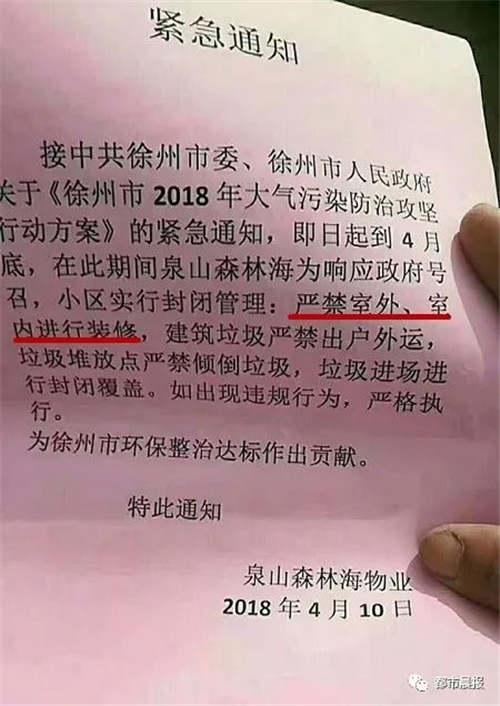 紧急通知
接中共徐州市委、徐州市人民政府
关于《徐州市2018年大气污染防治攻坚
行动方案》的紧急通知，即日起到4月
底，在此期间泉山森林海为响应政府号
召，小区实行封闭管理：严禁室外、室
内进行装修，建筑垃圾严禁出户外运，
垃圾堆放点严禁倾倒垃圾，垃圾进场进
行封闭覆盖。如出现违规行为，严格执
行。
为徐州市环保整治达标作出贡献。
特此通知
泉山森林海物业
2018年4月10日
都市晨报